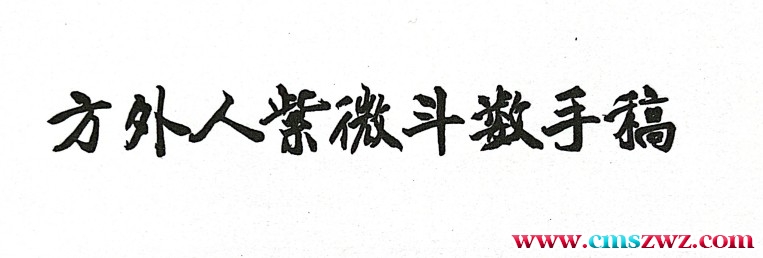 方外人紫微斗数手稿
www.cmszwz.com